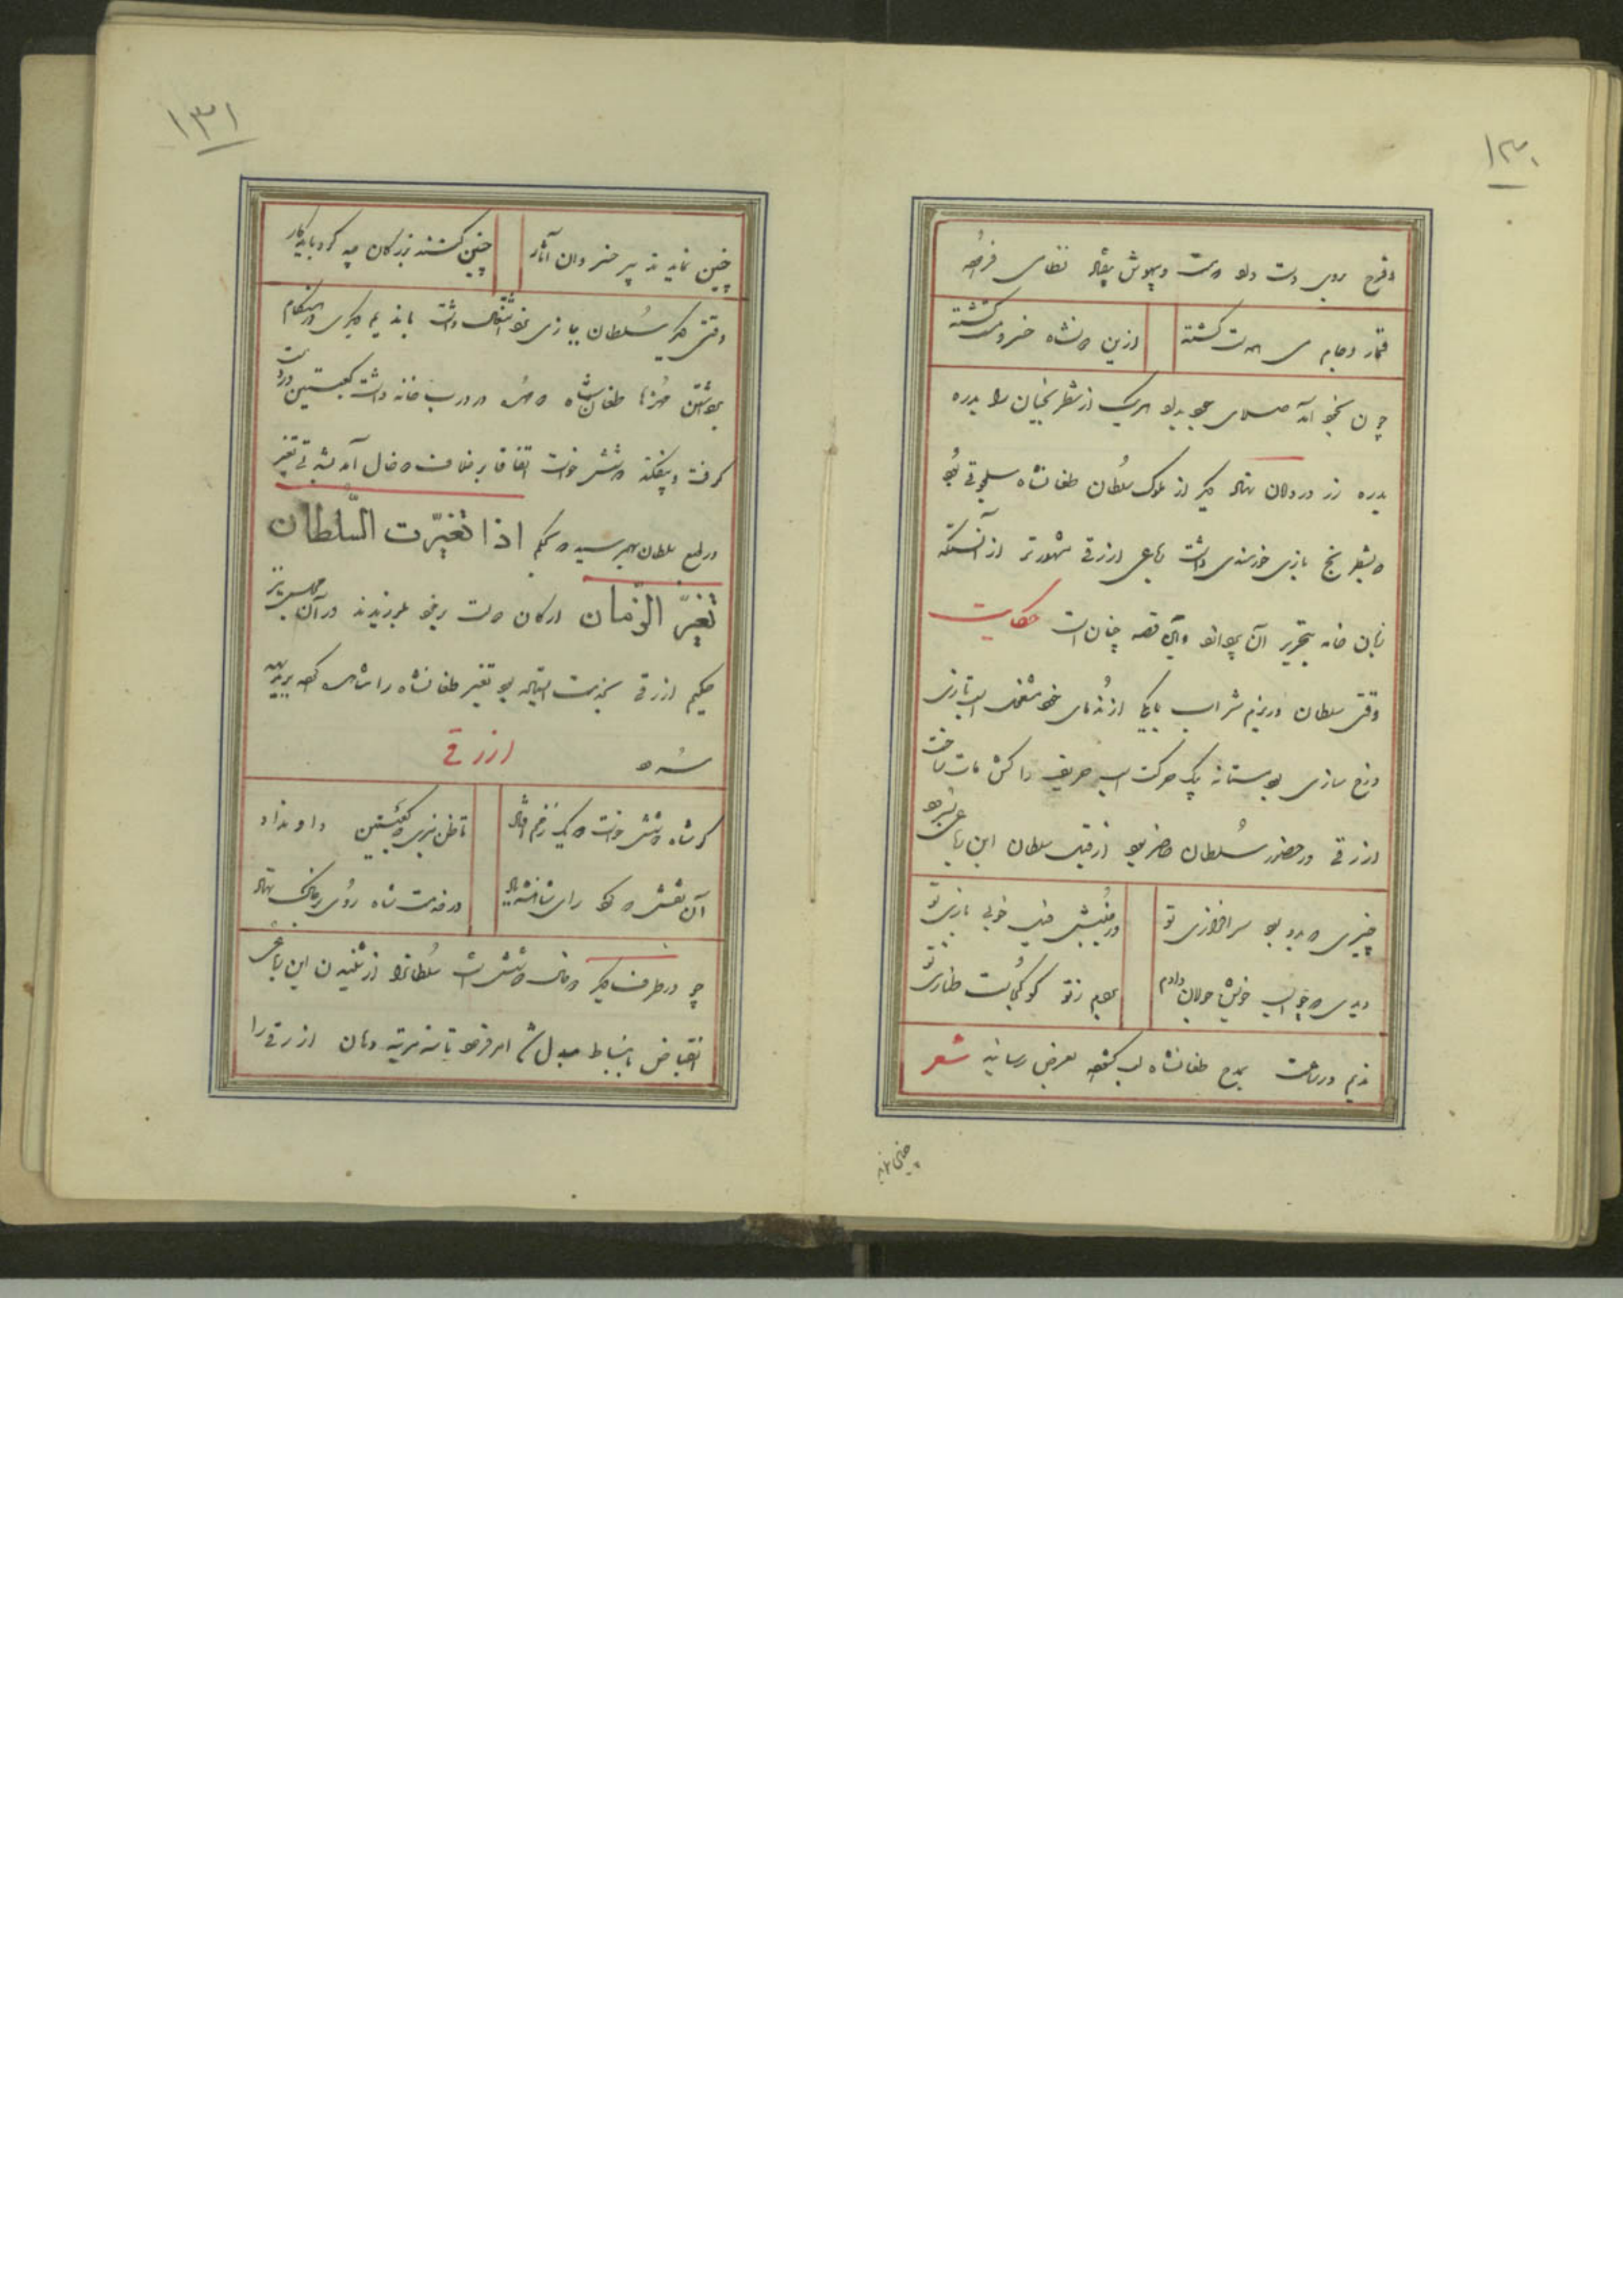 ۱۳۰
و فرح بروی دست دلو دست و بیهوش بیفتاد نظامی فرموده
قمار و جام می همدست گشته
ازین دو شاه خسرو مست گشته
چون بخود آمد صلای جود بداد هریک از شطرنجیان را بدره
بدره زر در دامان نهاد دیگر از ملوک سلطان طغانشاه سلجوقی بود
که بشطرنج بازی خرسندی داشت رباعی ازرقی مشهورتر از آنستکه
زبان خامه بتحریر آن پردازد و این قصه چنان است حکایت
وقتی سلطان در بزم شراب با یکی از ندمای خود شغل اسب تازی
و رخ سازی بود ستانه بیک حرکت اسب حریف را کش مات ساخت
ازرقی در حضور سلطان حاضر بود از قبل سلطان این رباعی بسرود
در جنبش فیل خوبی بازی تو
دیدی که چو اسب خویش جولان دادم
بردم ز تو گو کجاست طنازی تو
ندیم در ساعت بمدح طغانشاه لب گشوده بعرض رسانید شعر
۱۳۱
چنین نمایند پیر خسروان آثار
چنین کنند بزرگان چه کرد باید کار
وقتی دیگر سلطان ببازی نرد اشتغال داشت با ندیم دیگری در هنگام
برداشتن مهره‌ها طغانشاه دو مهره در درب خانه داشت کعبتین در دست
گرفت و بیفکند دو شش خواست اتفاقا بر خلاف دو خال آمد بی تغیر
در طبع سلطان بهم رسید و بحکم اذا تغیّرت السّلطان
تغیّر الزّمان ارکان دولت بر خود بلرزیدند در آن مجلس نیز
حکیم ازرقی بخدمت ایستاده بود تغیر طغانشاه را مشاهده کرده بدیهه
سرود ازرقی
گر شاه دو شش خواست دو یک زخم افتاد
تا ظن نبری که کعبتین داد نداد
آن نقش که کرد رای شاهنشه یاد
در خدمت شاه روی بر خاک نهاد
چو در طرف دیگر دو خال دو شش است سلطانرا از شنیدن این رباعی
انقباض بانبساط مبدل شد امر فرمود تا سه مرتبه دهان ازرقی را